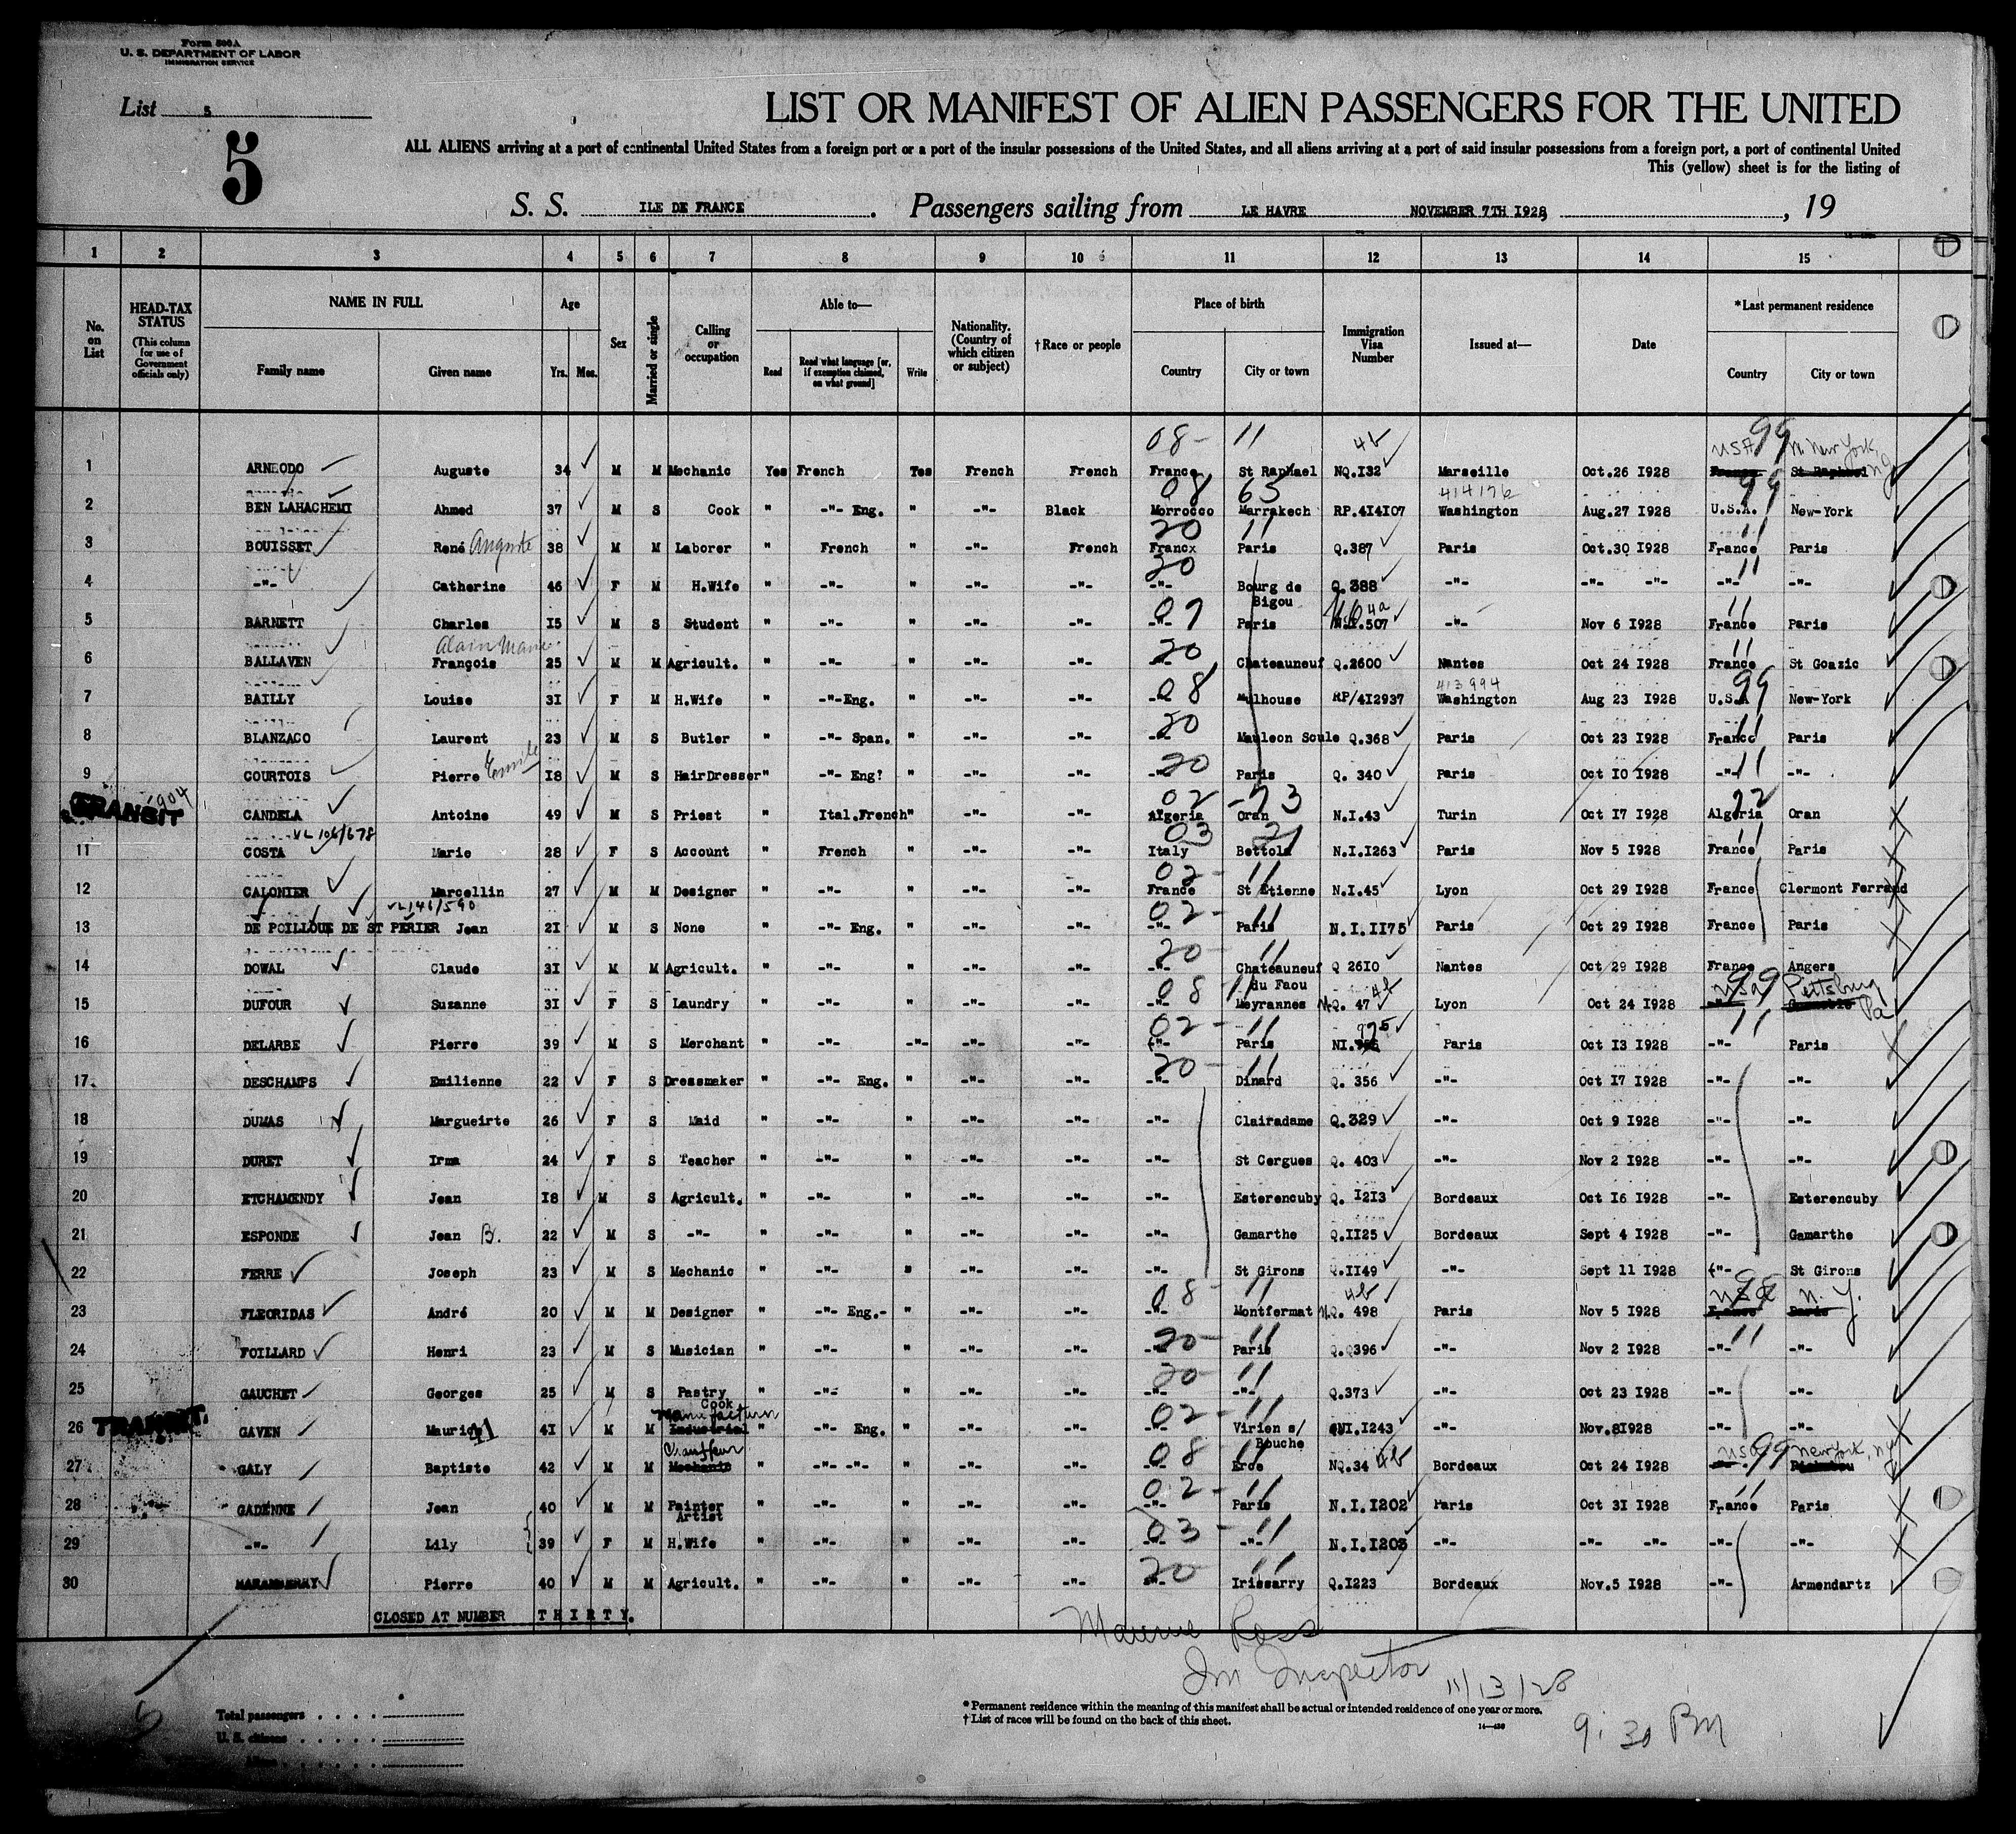 Form 500A
U. S. DEPARTMENT OF LABOR
IMMIGRATION SERVICE
List 5
5
LIST OR MANIFEST OF ALIEN PASSENGERS FOR THE UNITED
ALL ALIENS arriving at a port of continental United States from a foreign port or a port of the insular possessions of the United States, and all aliens arriving at a port of said insular possessions from a foreign port, a port of continental United
This (yellow) sheet is for the listing of
S. S. ILE DE FRANCE. Passengers sailing from LE HAVRE NOVEMBER 7TH I928, , 19
1 2 3 4 5 6 7 8 9 10 11 12 13 14 15
No. on List
HEAD-TAX STATUS (This column for use of Government officials only)
NAME IN FULL Family name Given name
Age Yrs. Mos.
Sex
Married or single
Calling or occupation
Able to— Read Read what language [or, if exemption claimed, on what ground] Write
Nationality. (Country of which citizen or subject)
†Race or people
Place of birth Country City or town
Immigration Visa Number
Issued at—
Date
*Last permanent residence Country City or town
08- 11 4b USA 99 W. New York, NJ
1 ARNEODO Auguste 34 M M Mechanic Yes French Yes French French France St Raphael NQ.I32 Marseille Oct.26 I928 France St Raphael
08 65 414176 99
2 BEN LAHACHEMI Ahmed 37 M S Cook " -"- Eng. " -"- Black Morrocco Marrakech RP.4I4I07 Washington Aug.27 I928 U.S.A. New-York
20 11 11
3 BOUISSET René Auguste 38 M M Laborer " French " -"- French Francx Paris Q.387 Paris Oct.30 I928 France Paris
20 11
4 -"- Catherine 46 F M H.Wife " -"- " -"- -"- -"- Bourg de Bigou Q.388 -"- -"- -"- -"- -"-
07 4a 11
5 BARNETT Charles I5 M S Student " -"- " -"- -"- -"- Paris 507 -"- Nov 6 I928 France Paris
Alain Marie 20 11
6 BALLAVEN François 25 M M Agricult. " -"- " -"- -"- -"- Chateauneuf Q.2600 Nantes Oct 24 I928 France St Goazic
08 413994 99
7 BAILLY Louise 3I F M H.Wife " -"-Eng. " -"- -"- -"- Mulhouse RP/4I2937 Washington Aug 23 I928 U.S.A New-York
20 11
8 BLANZACO Laurent 23 M S Butler " -"- Span. " -"- -"- -"- Mauleon Soule Q.368 Paris Oct 23 I928 France Paris
20 11
9 COURTOIS Pierre Emile I8 M S HairDresser" -"- Eng? " -"- -"- -"- Paris Q. 340 Paris Oct IO I928 -"- -"-
904 02 -73 72
TRANSIT CANDELA Antoine 49 M S Priest " Ital.French" -"- -"- Algeria Oran N.I.43 Turin Oct I7 I928 Algeria Oran
VL 106/678 03 21 11
11 COSTA Marie 28 F S Account " French " -"- -"- Italy Bettola N.I.I263 Paris Nov 5 I928 France Paris
02- 11
12 CALONIER Marcellin 27 M M Designer " -"- " -"- -"- France St Etienne N.I.45 Lyon Oct 29 I928 France Clermont Ferrand
VL146/590 02- 11
13 DE POILLOUE DE ST PERIER Jean 2I M S None " -"- Eng. " -"- -"- -"- Paris N.I.II75 Paris Oct 29 I928 France Paris
20- 11
14 DOWAL Claude 3I M M Agricult. " -"- " -"- -"- -"- Chateauneuf du Faou Q 26IO Nantes Oct 29 I928 France Angers
08 11 4b USA 99 Pittsburg Pa
15 DUFOUR Suzanne 3I F S Laundry " -"- " -"- -"- -"- Meyrannes NQ. 47 Lyon Oct 24 I928 -"-
02- 11 975 11
16 DELARBE Pierre 39 M S Merchant " -"- -"- -"- -"- -"- Paris NI. Paris Oct I3 I928 -"- Paris
20- 11
17. DESCHAMPS Emilienne 22 F S Dressmaker " -"- Eng. " -"- -"- -"- Dinard Q. 356 -"- Oct I7 I928 -"- -"-
18 DUMAS Margueirte 26 F S Maid " -"- " -"- -"- -"- Clairadame Q.329 -"- Oct 9 I928 -"- -"-
19 DURET Irma 24 F S Teacher " -"- " -"- -"- -"- St Cergues Q. 403 -"- Nov 2 I928 -"- -"-
20 ETCHAMENDY Jean I8 M S Agricult. " -"- " -"- -"- -"- Esterencuby Q. I2I3 Bordeaux Oct I6 I928 -"- Esterencuby
21 ESPONDE Jean B. 22 M S -"- " -"- " -"- -"- -"- Gamarthe Q.II25 Bordeaux Sept 4 I928 -"- Gamarthe
22 FERRE Joseph 23 M S Mechanic " -"- " -"- -"- -"- St Girons Q.II49 -"- Sept 11 I928 -"- St Girons
08- 11 4b USA 99 N. Y.
23 FLEORIDAS André 20 M M Designer " -"- Eng.- -"- -"- -"- Montfermat NQ. 498 Paris Nov 5 I928 France Paris
20- 11 11
24 FOILLARD Henri 23 M S Musician " -"- " -"- -"- -"- Paris Q.Q396 -"- Nov 2 I928 -"- -"-
20- 11
25 GAUCHET Georges 25 M S Pastry Cook " -"- " -"- -"- -"- -"- Q.373 -"- Oct 23 I928 -"- -"-
Manufacturer 02- 11
26 TRANSIT. GAVEN Maurice 41 4I M M Industrial " -"- Eng. " -"- -"- -"- Virien s/ Bouche NI.I243 -"- Nov.8I928 -"- -"-
Chauffeur 08 11 USA 99 New York, NY
27. GALY Baptiste 42 M M Mechanic " -"- -"- " -"- -"- -"- Erce NQ.34 4b Bordeaux Oct 24 I928 -"-
02- 11 11
28 GADENNE Jean 40 M M Painter Artist " -"- " -"- -"- -"- Paris N.I.I202 Paris Oct 3I I928 France Paris
03- 11
29 -"- Lily 39 F M H.Wife " -"- " -"- -"- -"- -"- N.I.I203 -"- -"- -"- -"- -"-
20 11
30 MARAMBERRY Pierre 40 M M Agricult. " -"- " -"- -"- -"- Irissarry Q.I223 Bordeaux Nov.5 I928 -"- Armendartz
CLOSED AT NUMBER T H I R T Y.
Ross
Im Inspector 11/13/28
9:30 PM
Total passengers
U. S. citizens
Aliens
*Permanent residence within the meaning of this manifest shall be actual or intended residence of one year or more.
†List of races will be found on the back of this sheet.